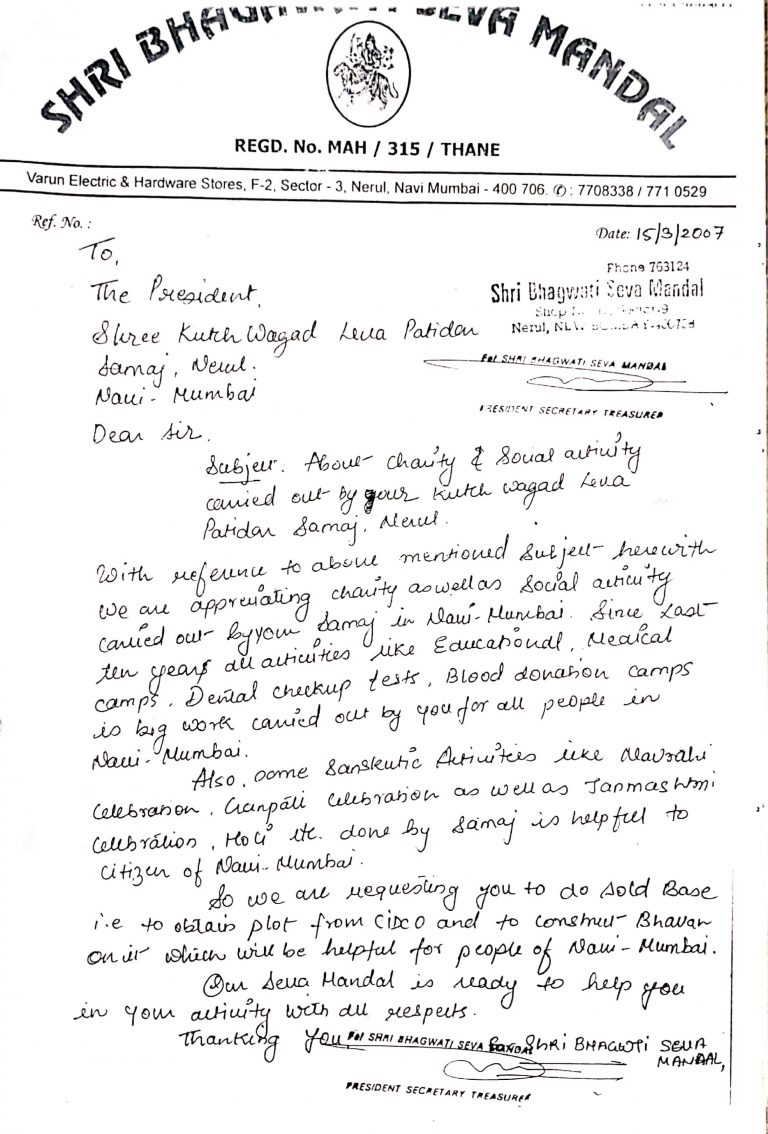 SHRI BHAGWATI SEVA MANDAL
REGD. No. MAH / 315 / THANE
Varun Electric & Hardware Stores, F-2, Sector - 3, Nerul, Navi Mumbai - 400 706. ✆ : 7708338 / 771 0529
Ref. No. :
Date: 15/3/2007
To,
The President,
Shree Kutch Wagad Leva Patidar
Samaj, Nerul.
Navi - Mumbai
Phone 763124
Shri Bhagwati Seva Mandal
Shop
Nerul, NEW BOMBAY-400706
For SHRI BHAGWATI SEVA MANDAL
PRESIDENT SECRETARY TREASURER
Dear Sir.
Subject. About charity & Social activity
carried out by your Kutch Wagad Leva
Patidar Samaj, Nerul.
With reference to above mentioned Subject herewith
we are appreciating charity aswellas Social activity
carried out by your Samaj in Navi-Mumbai. Since Last
ten years all activities like Educational, Medical
camps, Dental checkup tests, Blood donation camps
is big work carried out by you for all people in
Navi-Mumbai.
Also, some Sanskrutic Activities like Navratri
Celebration, Ganpati Celebration as well as Janmashtmi
Celebration, Holi etc. done by Samaj is helpful to
citizen of Navi-Mumbai.
So we are requesting you to do Sold Base
i.e to obtain plot from CIDCO and to construct Bhavan
on it which will be helpful for people of Navi-Mumbai.
Our Seva Mandal is ready to help you
in your activity with all respects.
Thanking You,
For SHRI BHAGWATI SEVA MANDAL
For SHRI BHAGWTI SEVA
MANDAL,
PRESIDENT SECRETARY TREASURER